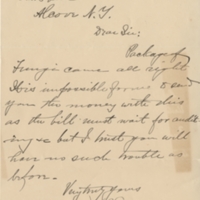 Alcove N.Y.
Dear Sir:
Package of
Fungi came all right
It is impossible for me to send
you the money with this
as the bill must wait for audit
but I trust you will
have no such trouble as
before.
Very truly yours